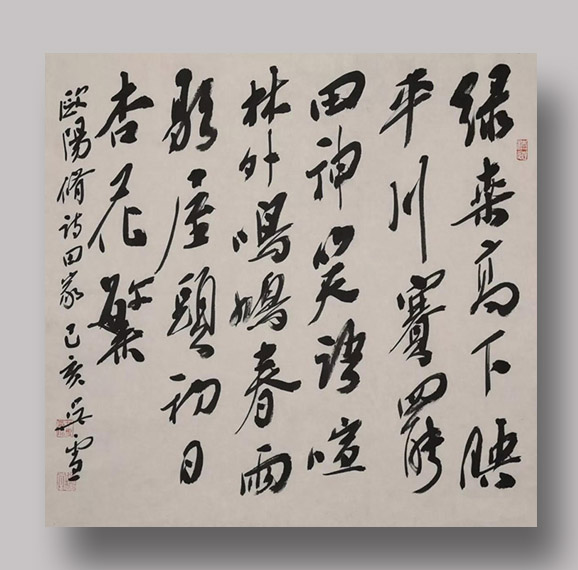 绿桑高下映
平川賽罷
田神笑语喧
林外鳴鳩春雨
歇屋頭初日
杏花繁
歐陽脩诗田家己亥吴雪